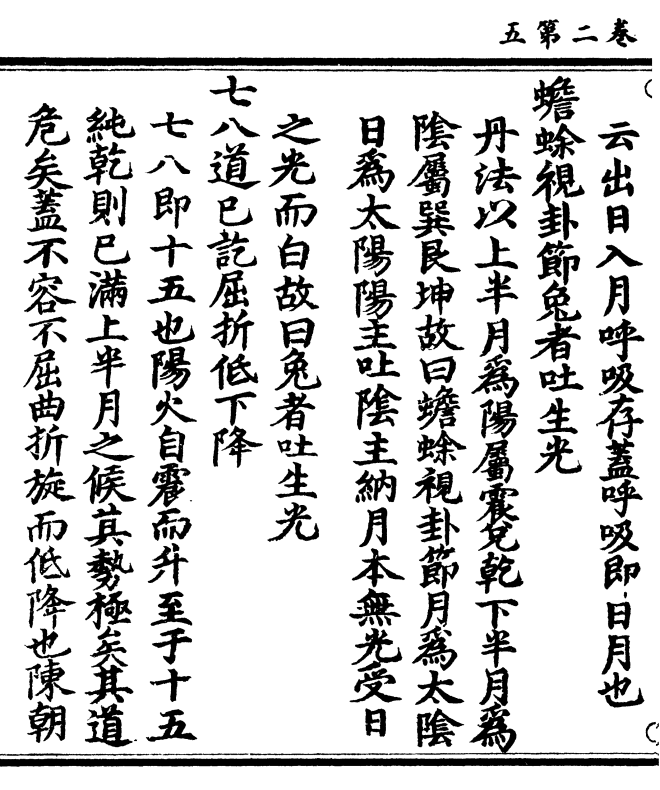 五第二卷
云出日入月呼吸存蓋呼吸即日月也
蟾蜍視卦節兔者吐生光
丹法以上半月爲陽屬震兌乾下半月爲
陰屬巽艮坤故曰蟾蜍視卦節月爲太陰
日爲太陽陽主吐陰主納月本無光受日
之光而白故曰兔者吐生光
七八道已訖屈折低下降
七八即十五也陽火自震而升至于十五
純乾則已滿上半月之候其勢極矣其道
危矣蓋不容不屈曲折旋而低降也陳朝